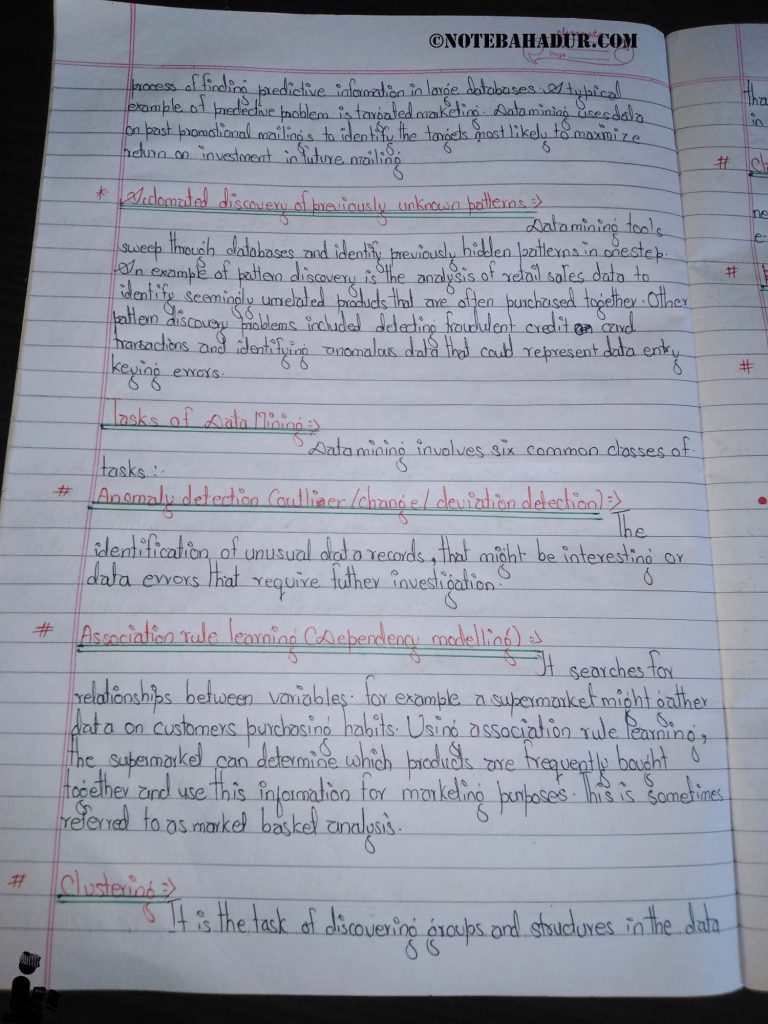 ©NOTEBAHADUR.COM
process of finding predictive information in large databases. A typical
example of predective problem is targated marketing. Data mining uses data
on past promotional mailings to identify the targets most likely to maximize
return on investment in future mailing
* Automated discovery of previously unknown patterns :⇒
Data mining tools
sweep through databases and identify previously hidden patterns in one step.
An example of pattern discovery is the analysis of retail sales data to
identify seemingly unrelated products that are often purchased together. Other
pattern discovery problems included detecting fraudulent credit card
transactions and identifying anomalous data that could represent data entry
keying errors.
Tasks of Data Mining :⇒
Data mining involves six common classes of
tasks :-
# Anomaly detection (outlier/change/deviation detection) :⇒
The
identification of unusual data records, that might be interesting or
data errors that require futher investigation.
# Association rule learning (Dependency modelling) :⇒
It searches for
relationships between variables. for example a supermarket might gather
data on customers purchasing habits. Using association rule learning,
the supermarket can determine which products are frequently bought
together and use this information for marketing purposes. This is sometimes
referred to as market basket analysis.
# Clustering :⇒
It is the task of discovering groups and structures in the data
tha
in
#
ne
e-
#
#